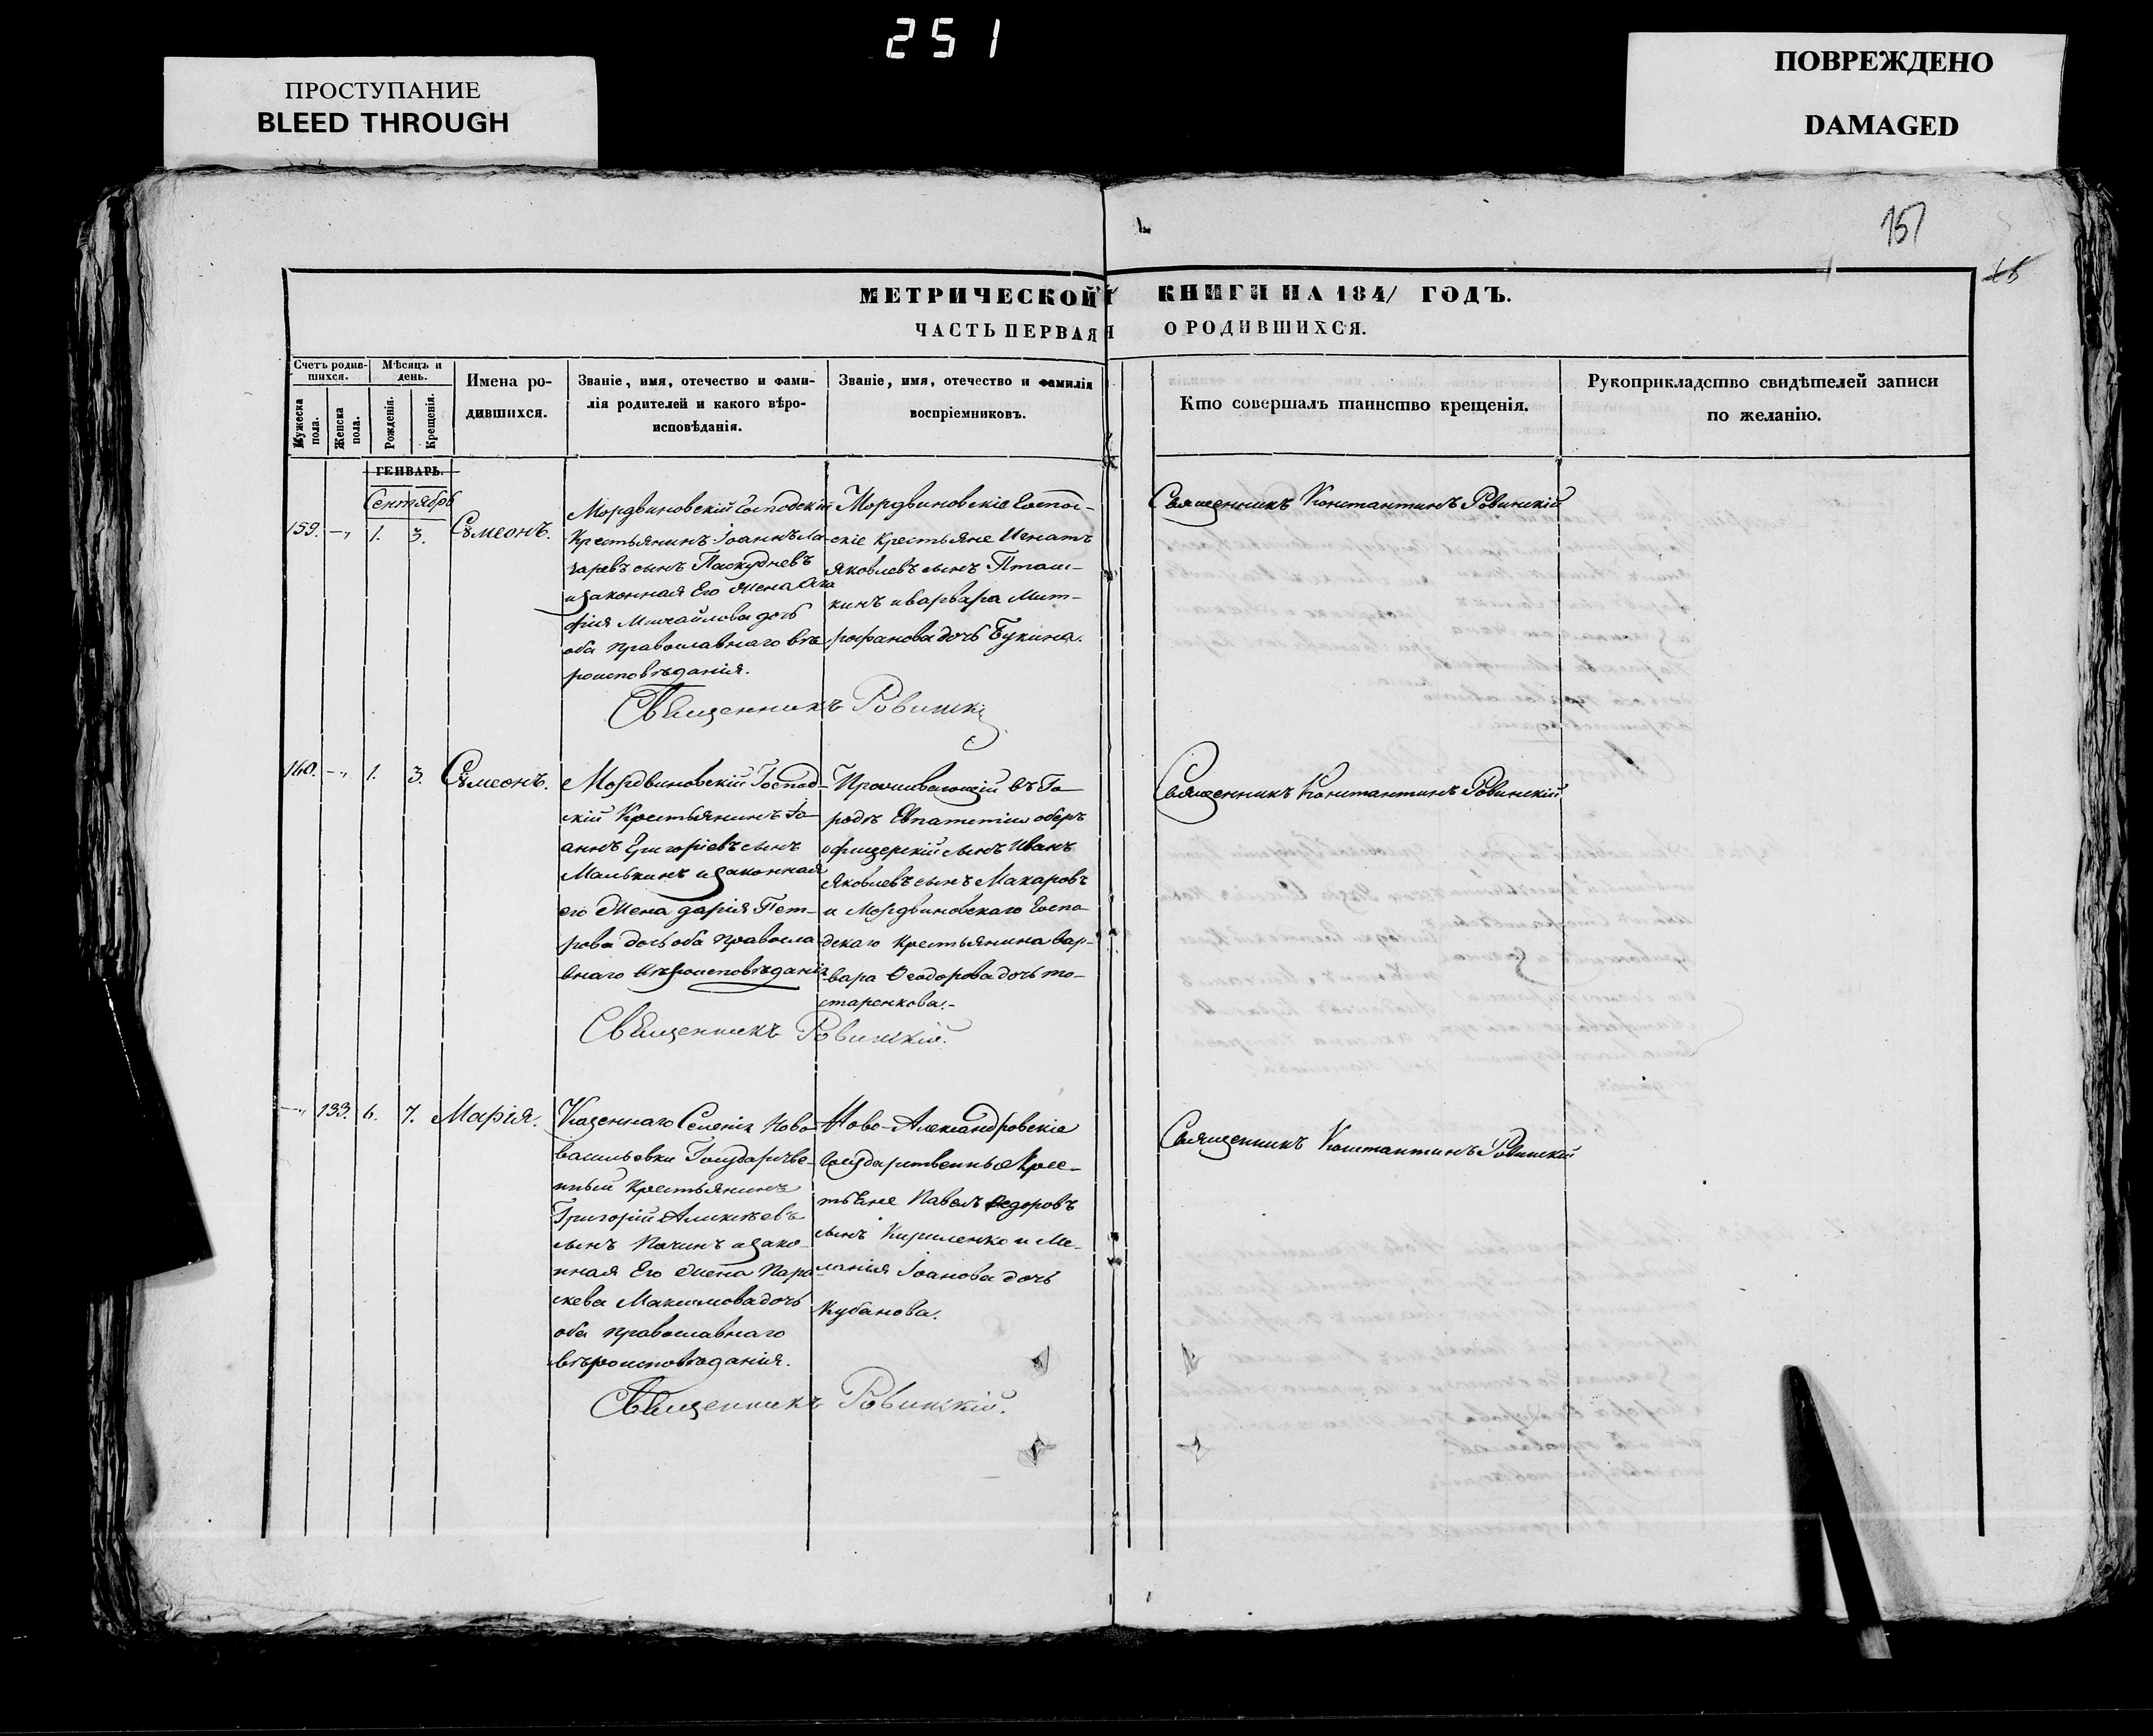 251
ПРОСТУПАНИЕ
BLEED THROUGH
ПОВРЕЖДЕНО
DAMAGED
151
МЕТРИЧЕСКОЙ КНИГИ НА 1841 ГОДЪ.
ЧАСТЬ ПЕРВАЯ О РОДИВШИХСЯ.
Счетъ родив-
шихся.
Мужеска пола.
Женска пола.
Мѣсяцъ и
день.
Рожденія.
Крещенія.
Имена ро-
дившихся.
Званіе, имя, отечество и фами-
лія родителей и какого вѣро-
исповѣданія.
Званіе, имя, отечество и фамилія
воспріемниковъ.
Кто совершалъ таинство крещенія.
Рукоприкладство свидѣтелей записи
по желанію.
ГЕНВАРЬ.
Сентябрь
159. — 1. 3. Сѵмеонъ.
Мордвиновскій Господскій
Крестьянинъ Іоаннъ Ла-
заревъ сынъ Паскудневъ
и законная Его жена Ага
фія Михайлова дочь
оба православнаго вѣ
роисповѣданія.
Мордвиновскіе Господ-
скіе Крестьяне Игнатъ
Яковлевъ сынъ Пташ-
кинъ и варвара Мит-
рофанова дочь Букина.
Священникъ Константинъ Ровинскій
Священникъ Ровинскій
160. — 1. 3. Сѵмеонъ.
Мордвиновскій Господ-
скій Крестьянинъ Іо-
аннъ Григоріевъ сынъ
Малькинъ и законная
его жена дарія Пет-
рова дочь оба правосла-
внаго вѣроисповѣданія
Проживающій въ Го-
родѣ Евпаторіи оберъ
офицерскій сынъ Иванъ
Яковлевъ сынъ Макаровъ
и Мордвиновскаго Госпо-
дскаго крестьянина вар-
вара Ѳеодорова дочь
Священникъ Константинъ Ровинскій
Священникъ Ровинскій.
— 133. 6. 7. Марія.
Казеннаго Селенія Ново-
васильевки Государстве-
нный Крестьянинъ
Григорій Алексѣевъ
сынъ и зако-
нная Его жена Пара-
скева Максимова дочь
оба православнаго
вѣроисповѣданія.
Ново-Александровскіе
Государственные Крес-
тьяне Павелъ Ѳедоровъ
сынъ Кириленко и Ме-
ланія Іоанова дочь
Кубанова.
Священникъ Константинъ Ровинскій
Священникъ Ровинскій.